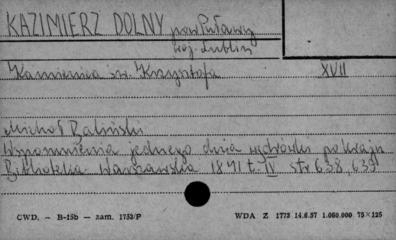 KAZIMIERZ DOLNY pow Puławy
woj. Lublin
Kamienica św. Krzysztofa XVII
Michał Baliński
Wspomnienia jednego dnia wędrówki po kraju
Biblioteka Warszawska 1841 t. III str 638, 639
CWD. – B-15b – zam. 1753/P WDA Z 1773 14.6.57 1.060.000 75×125